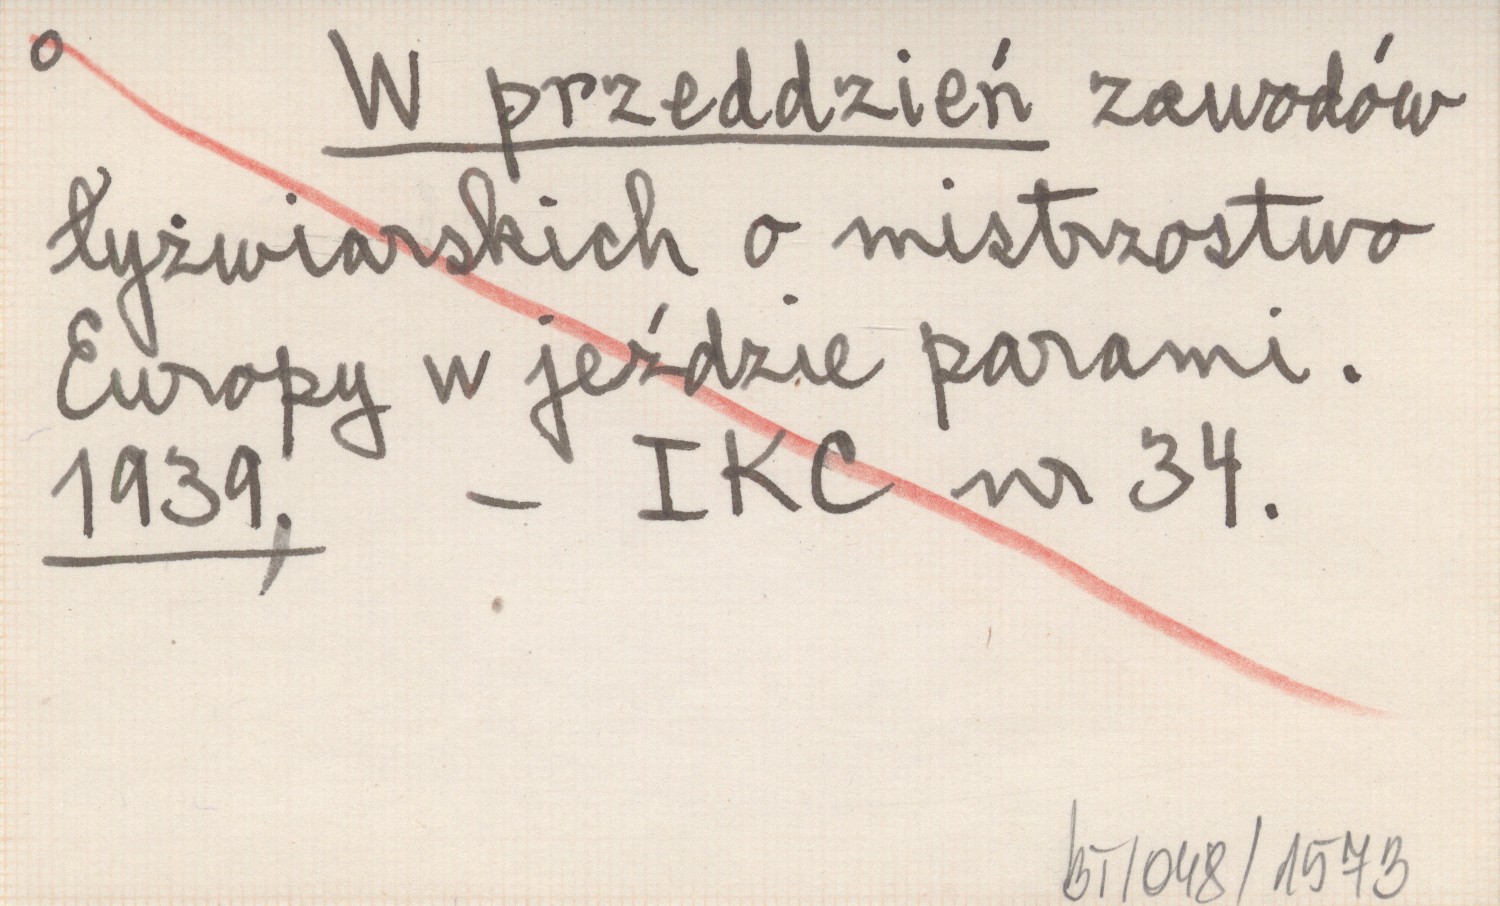 o W przeddzień zawodów
łyżwiarskich o mistrzostwo
Europy w jeździe parami.
1939, - IKC nr 34.
BT/048/1573